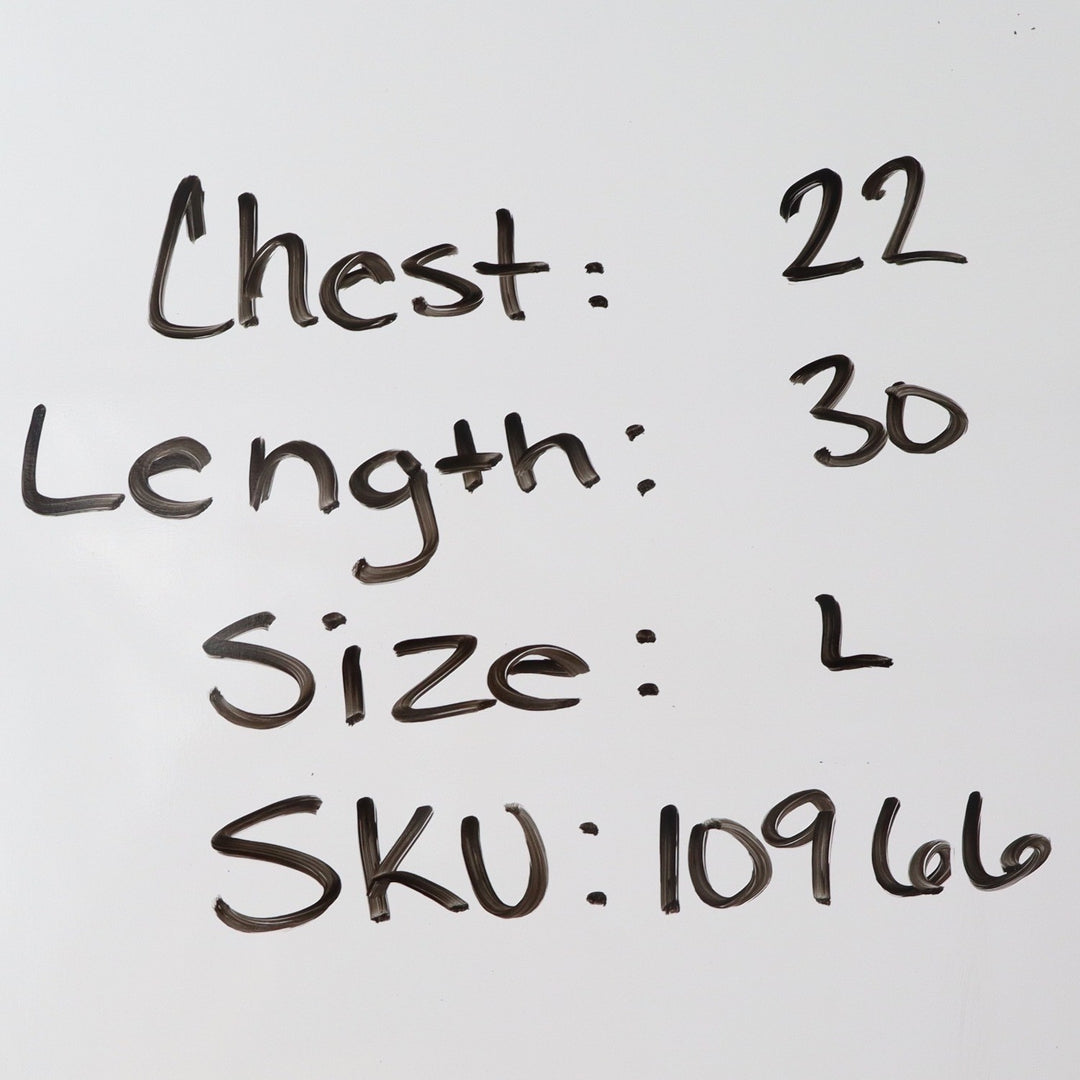 Chest: 22
Length: 30
Size: L
SKU: 10966